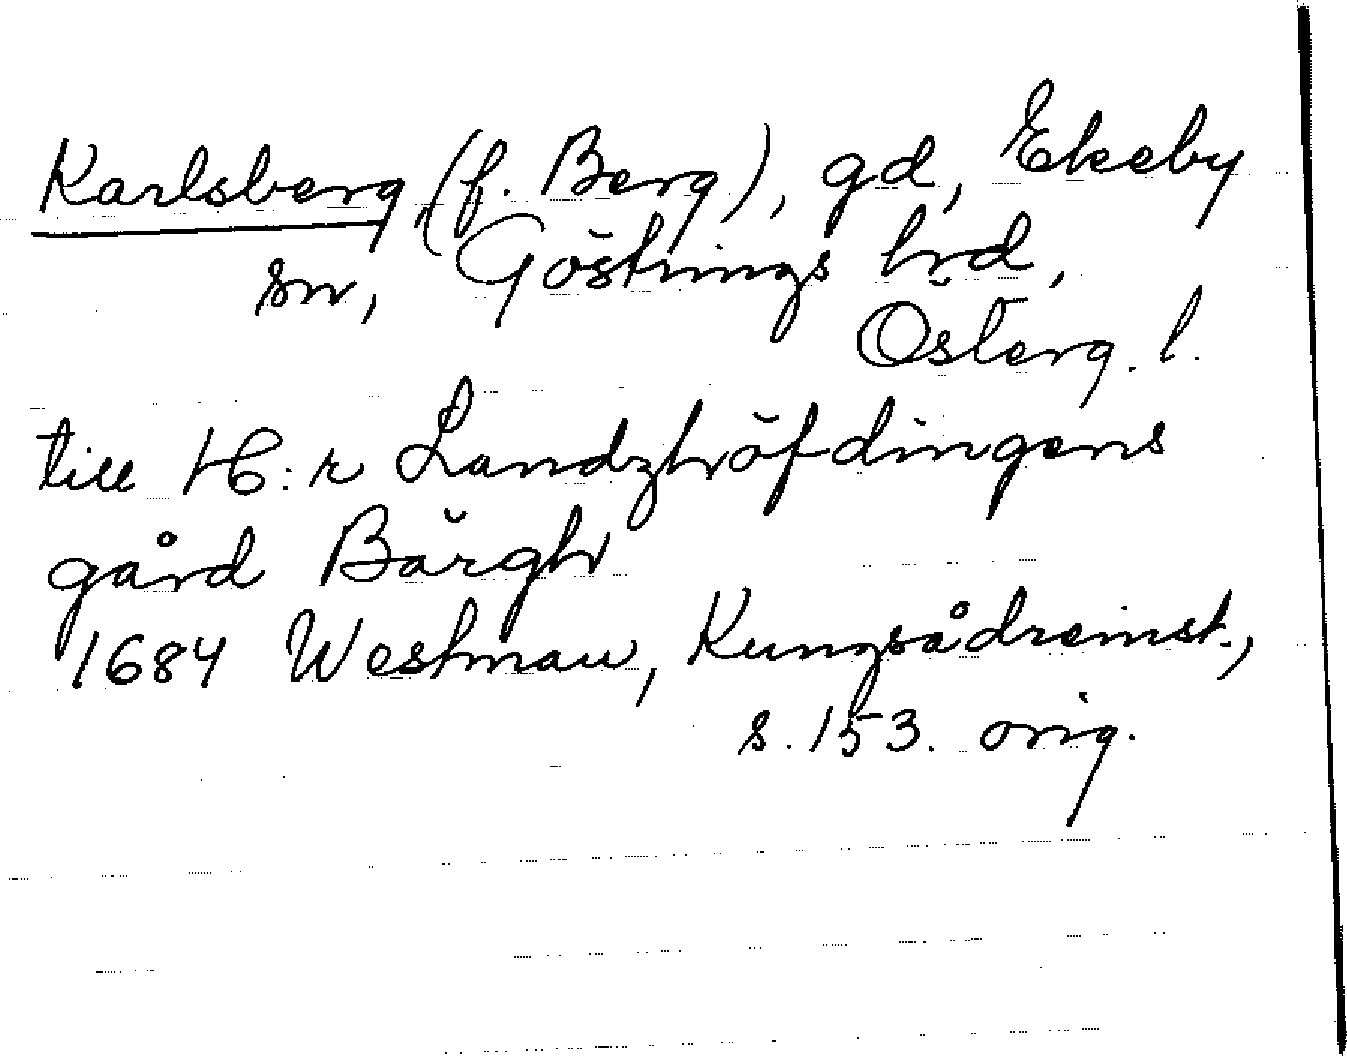 Karlsberg, (f. Berg), gd, Ekeby
sn, Göstrings hrd,
Österg. l.
till H:r Landzhöfdingens
gård Bärgh
1684 Westman, Kungsådreinst.,
s. 153. orig.